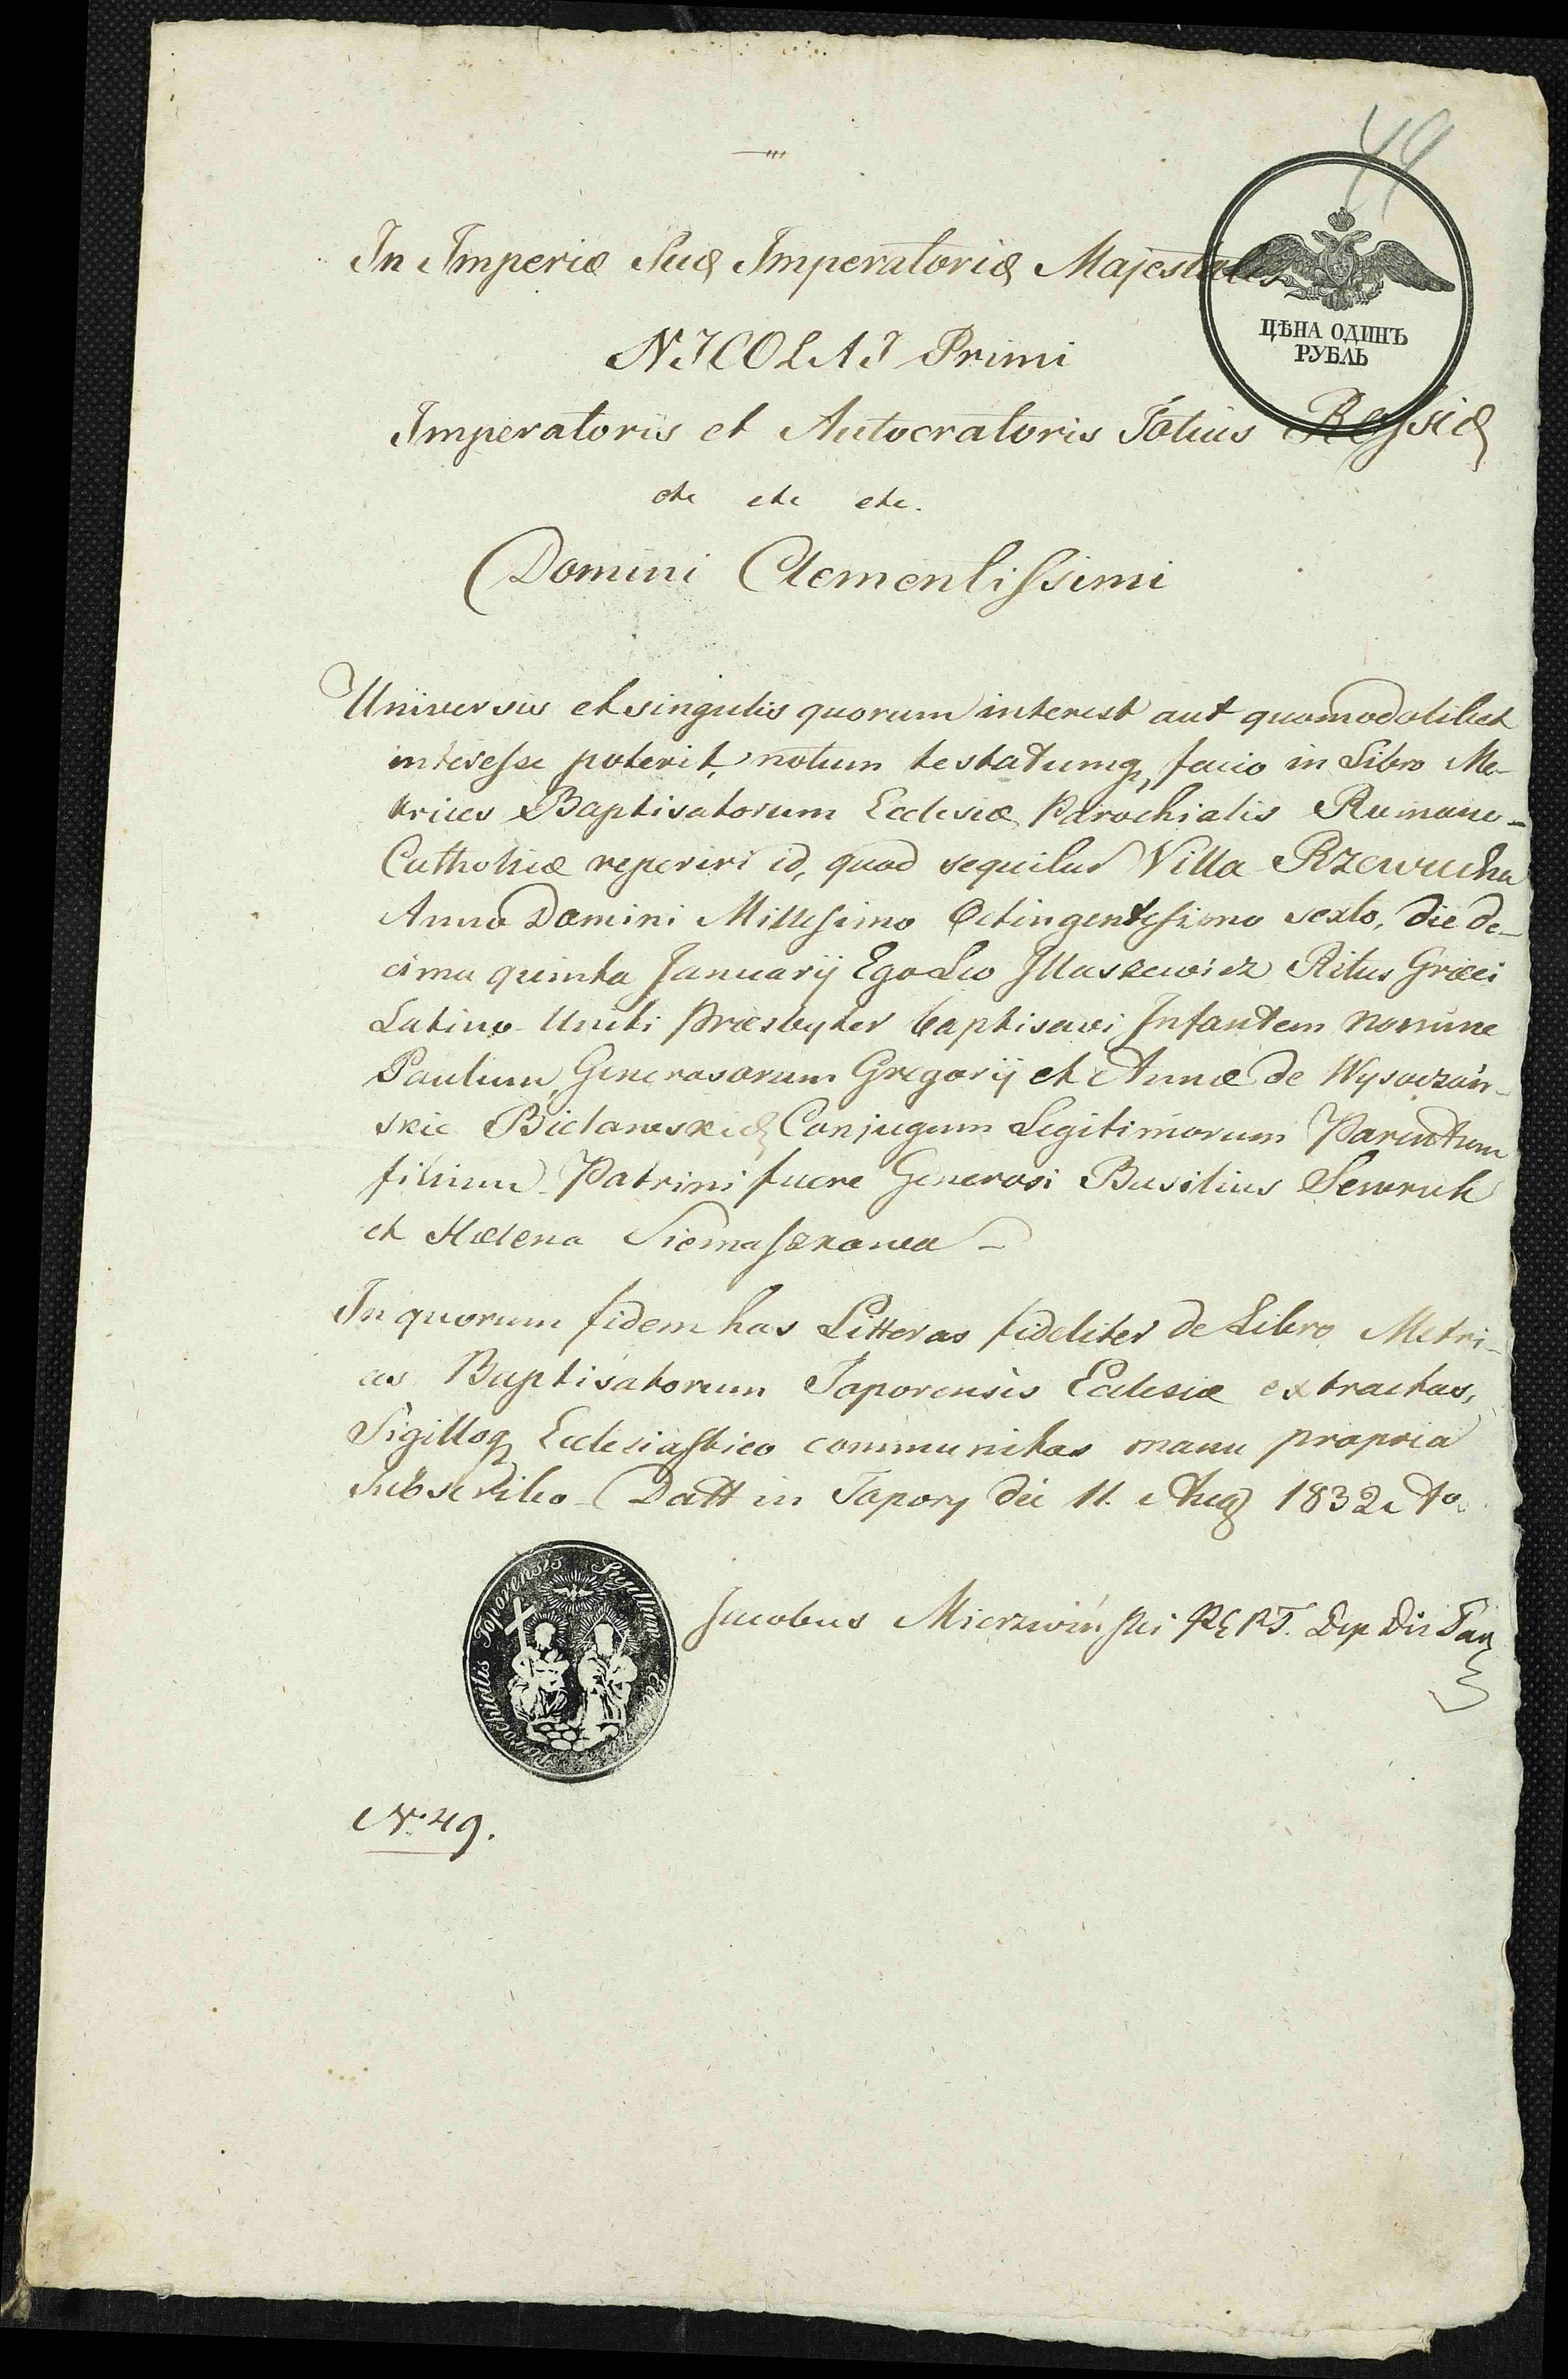 49
In Imperiæ Suæ Imperatoriæ Majestatis
NICOLAI Primi
ЦѢНА ОДИНЪ
РУБЛЬ
Imperatoris et Autocratoris Totius Rossiæ
etc etc etc.
Domini Clementissimi
Universis et singulis quorum interest aut quomodolibet
interesse poterit, notum testatumq, facio in Libro Me-
trices Baptisatorum Ecclesiæ Parochialis Romano-
Catholicæ reperiri id, quod sequitur Villa Rzewucha
Anno Domini Millesimo Octingentesimo sexto, die de-
cima quinta Januarij Ego Leo Illaszewicz Ritus Græci
Latino Uniti Præsbyter baptisavi Infantem nomine
Paulum, Generosorum Gregorij et Annæ de Wysoczań-
skie Bielawskiæ Conjugum Legitimorum Parentum
filium. Patrini fuere Generosi Basilius Sewruk
et Hælena Siemaszkowa -
In quorum fidem has Litteras fideliter de Libro Metri-
ces Baptisatorum Toporensis Ecclesiæ extractas,
Sigilloq Ecclesiastico communitas manu propria
subscribo. Datt in Topory die 11. Aug 1832 Ao
Parochialis Toporensis Sigillum
Jacobus Mierzwiński
No 49.